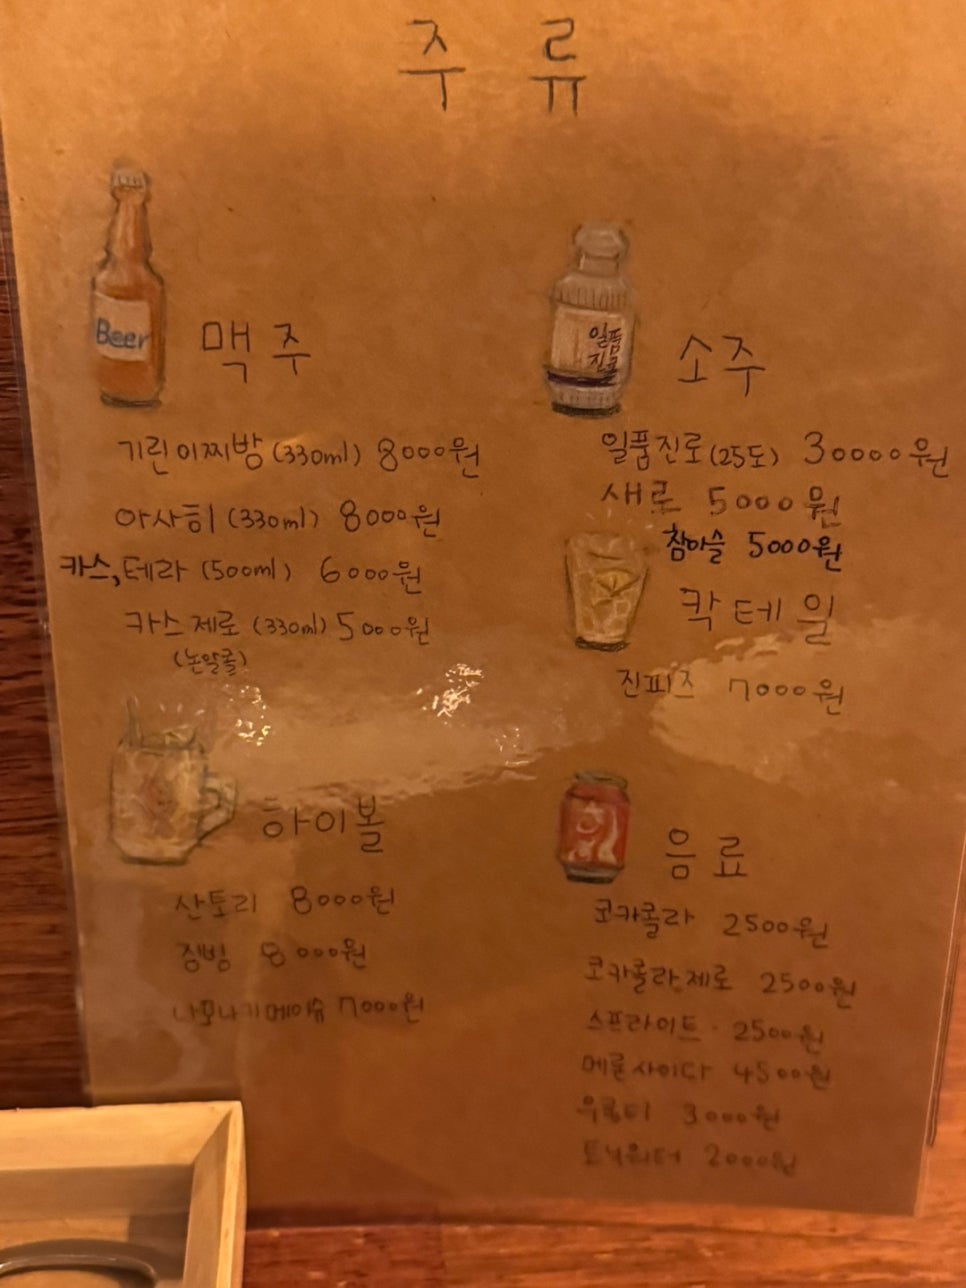 주 류
Beer
맥주
기린이찌방 (330ml) 8000원
아사히 (330ml) 8000원
카스, 테라 (500ml) 6000원
카스제로 (330ml) 5000원
(논알콜)
하이볼
산토리 8000원
짐빔 8000원
7000원
일품
진로
소주
일품진로 (25도) 30000원
새로 5000원
참이슬 5000원
칵테일
진피즈 7000원
음료
코카콜라 2500원
코카콜라제로 2500원
스프라이트 2500원
메론사이다 4500원
우롱티 3000원
토닉워터 2000원